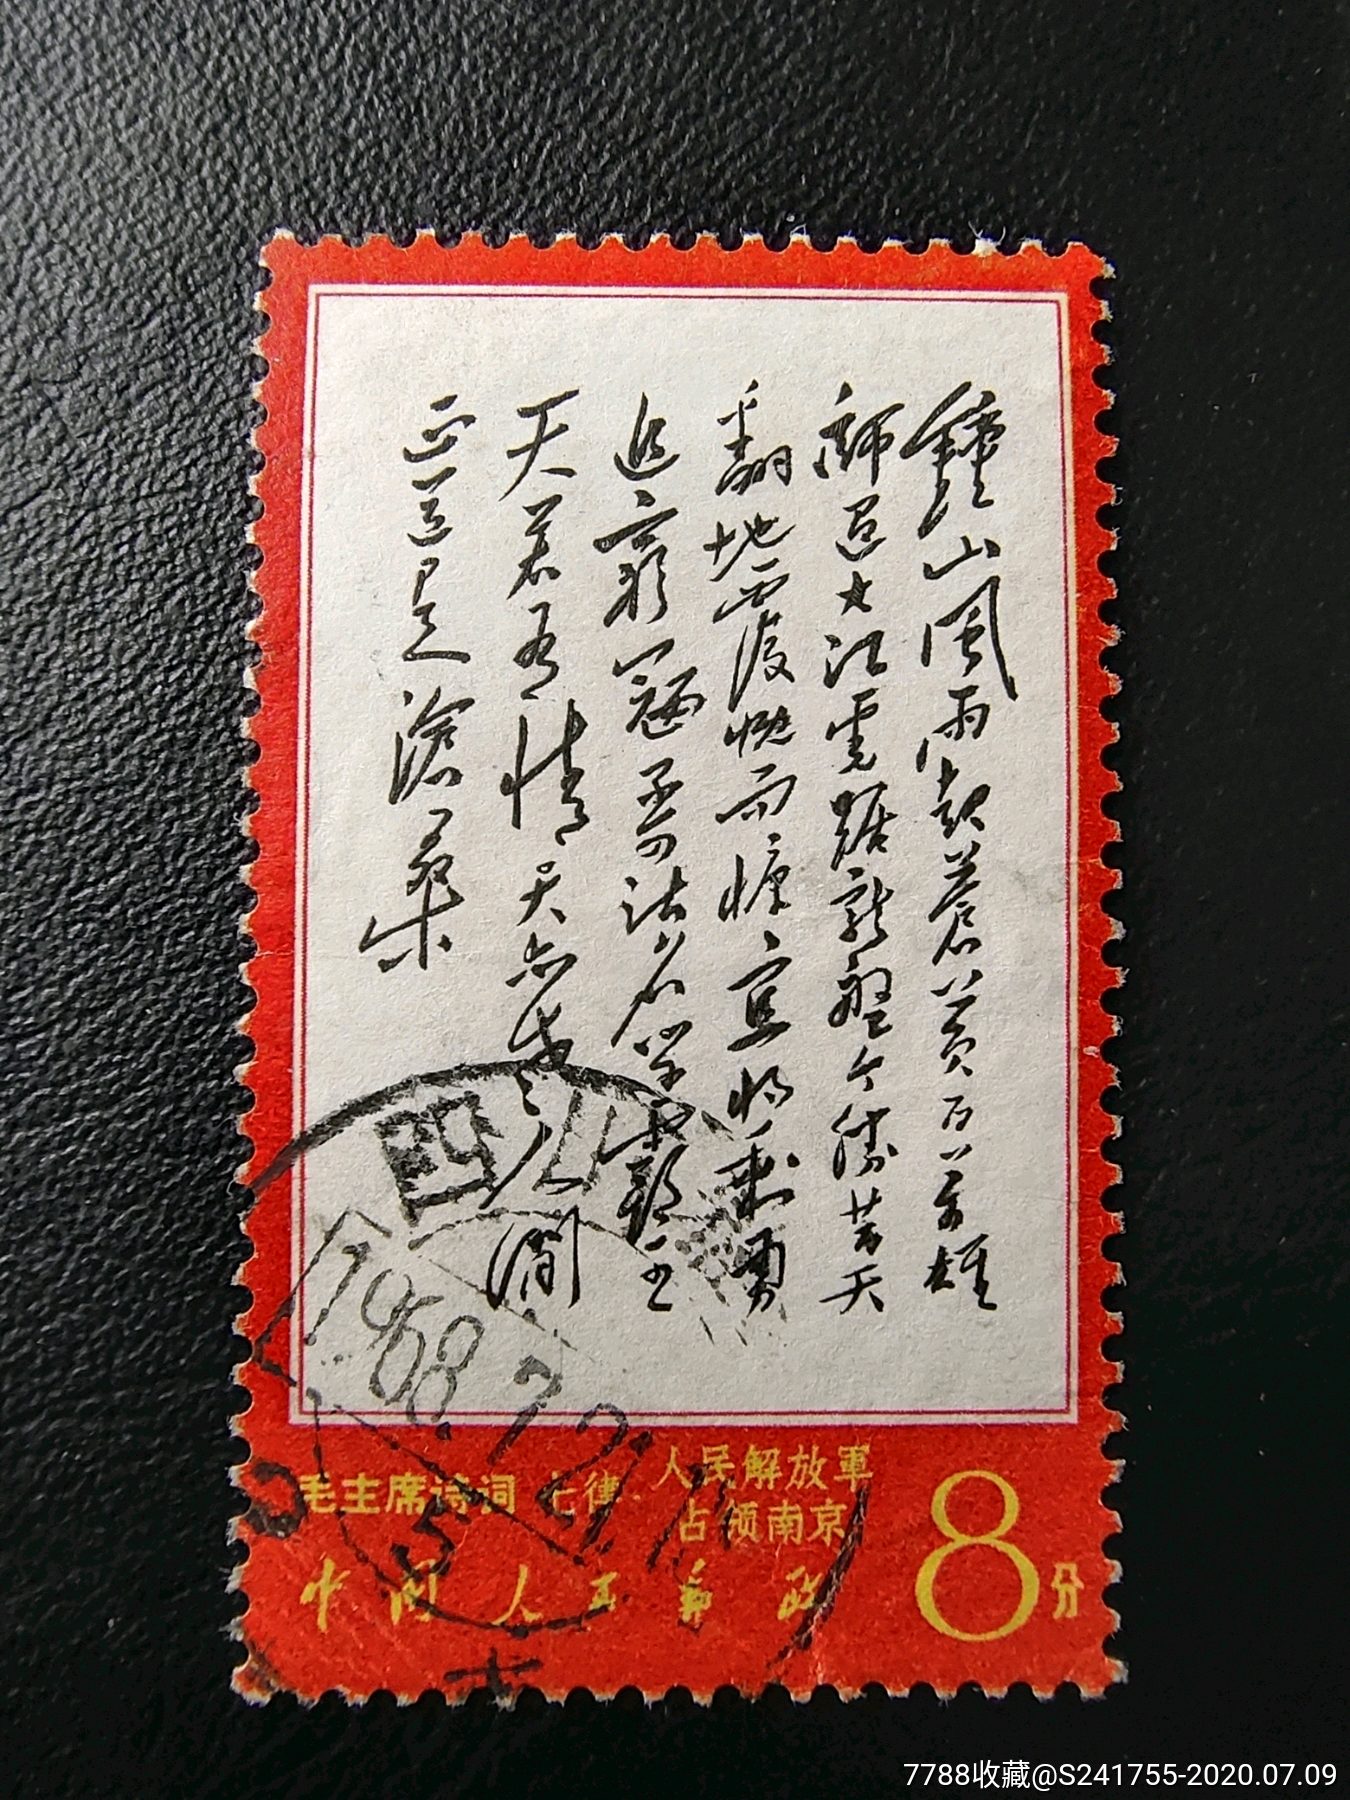 鐘山風雨起蒼黄百万雄
師過大江虎踞龍盤今勝昔天
翻地覆慨而慷宜將剩勇
追窮寇不可沽名學霸王
天若有情天亦老人間
正道是滄桑
四川
1968.7.21
毛主席诗词 七律·人民解放軍
占领南京
中国人民邮政
8分
7788收藏@S241755-2020.07.09